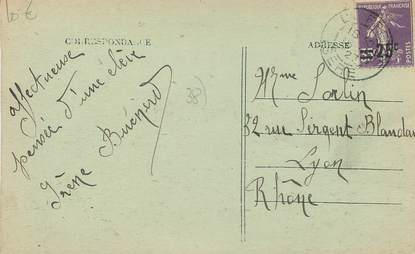 10 €
CORRESPONDANCE
ADRESSE
affectueuse
pensée d'une élève
Irène
38)
Mme
32 rue Sergent Blandan
Lyon
Rhône
RÉPUBLIQUE FRANÇAISE
POSTES
=25c